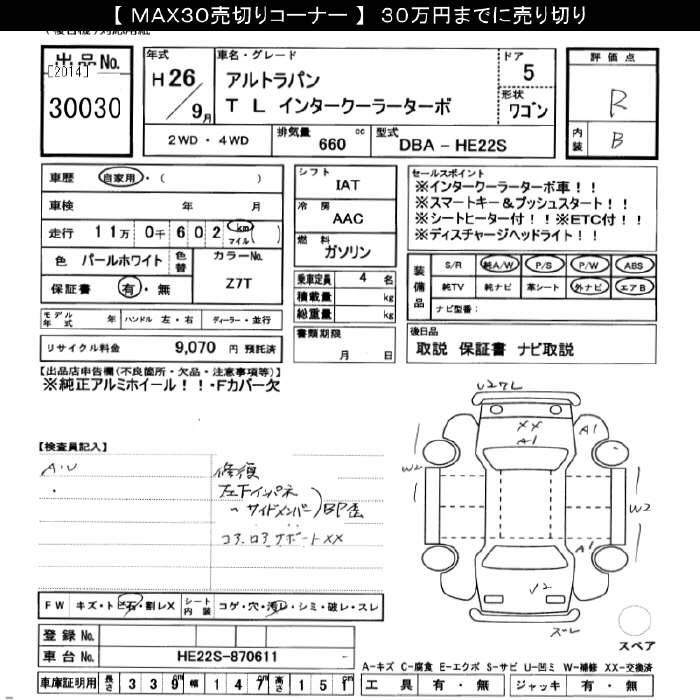 【 MAX30売切りコーナー 】 30万円までに売り切り
出品No.
[2014]
30030
年式
H26/9月
車名・グレード
アルトラパン
TL インタークーラーターボ
ドア
5
形状
ワゴン
評価点
R
内装
B
2WD ・ 4WD
排気量
660 cc
型式
DBA - HE22S
車歴 自家用・( )
車検 年 月
走行 11万 0千 602 km マイル ( )
色 パールホワイト
色替
カラーNo.
Z7T
保証書 有・無
シフト
IAT
冷房
AAC
燃料
ガソリン
乗車定員 4 名
積載量 kg
総重量 kg
書類期限
月 日
セールスポイント
※インタークーラーターボ車！！
※スマートキー＆プッシュスタート！！
※シートヒーター付！！※ETC付！！
※ディスチャージヘッドライト！！
装備品
S/R 純A/W P/S P/W ABS
純TV 純ナビ 革シート 外ナビ エアB
ナビ型番：
モデル年式 年 ハンドル 左・右 ディーラー・並行
リサイクル料金 9,070 円 預託済
後日品
取説 保証書 ナビ取説
【出品店申告欄(不良箇所・欠品・注意事項等)】
※純正アルミホイール！！・Fカバー欠
【検査員記入】
A・U
修復
左下インパネ
サイドメンバー
BP歪
コア.ロアサポートXX
XX
A1
A1
W2
W2
A1
V2
ズレ
スペア
FW キズ・ト 石・割レX
シート内装 コゲ・穴・汚レ・シミ・破レ・スレ
登録No.
車台No. HE22S-870611
車庫証明用 長さ 339cm 幅 147cm 高さ 151cm
A-キズ C-腐食 E-エクボ S-サビ U-凹ミ W-補修 XX-交換済
工具 有・無 ジャッキ 有・無